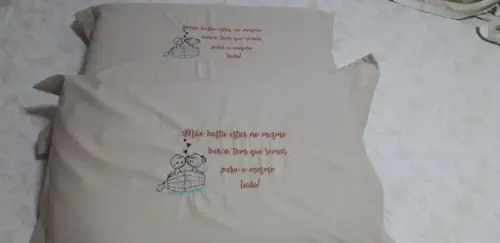 Não basta estar no mesmo
barco, tem que remar
para o mesmo
lado!
Não basta estar no mesmo
barco, tem que remar
para o mesmo
lado!